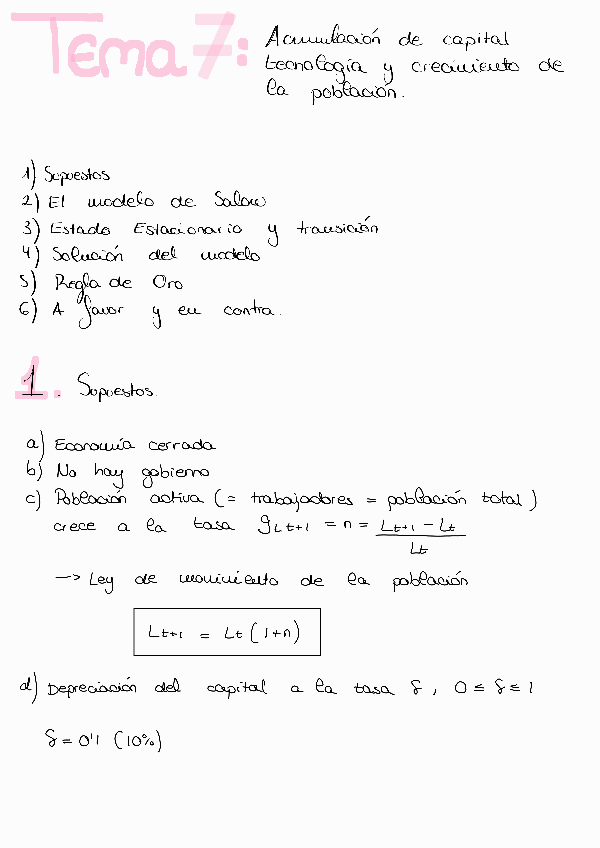 Tema 7:
Acumulación de capital
tecnología y crecimiento de
la población.
1) Supuestos
2) El modelo de Solow
3) Estado Estacionario y transición
4) Solución del modelo
5) Regla de Oro
6) A favor y en contra.
1. Supuestos.
a) Economía cerrada
b) No hay gobierno
c) Población activa (= trabajadores = población total)
crece a la tasa gLt+1 = n = (Lt+1 - Lt) / Lt
→ Ley de movimiento de la población
Lt+1 = Lt (1+n)
d) Depreciación del capital a la tasa δ, 0 ≤ δ ≤ 1
δ = 0'1 (10%)